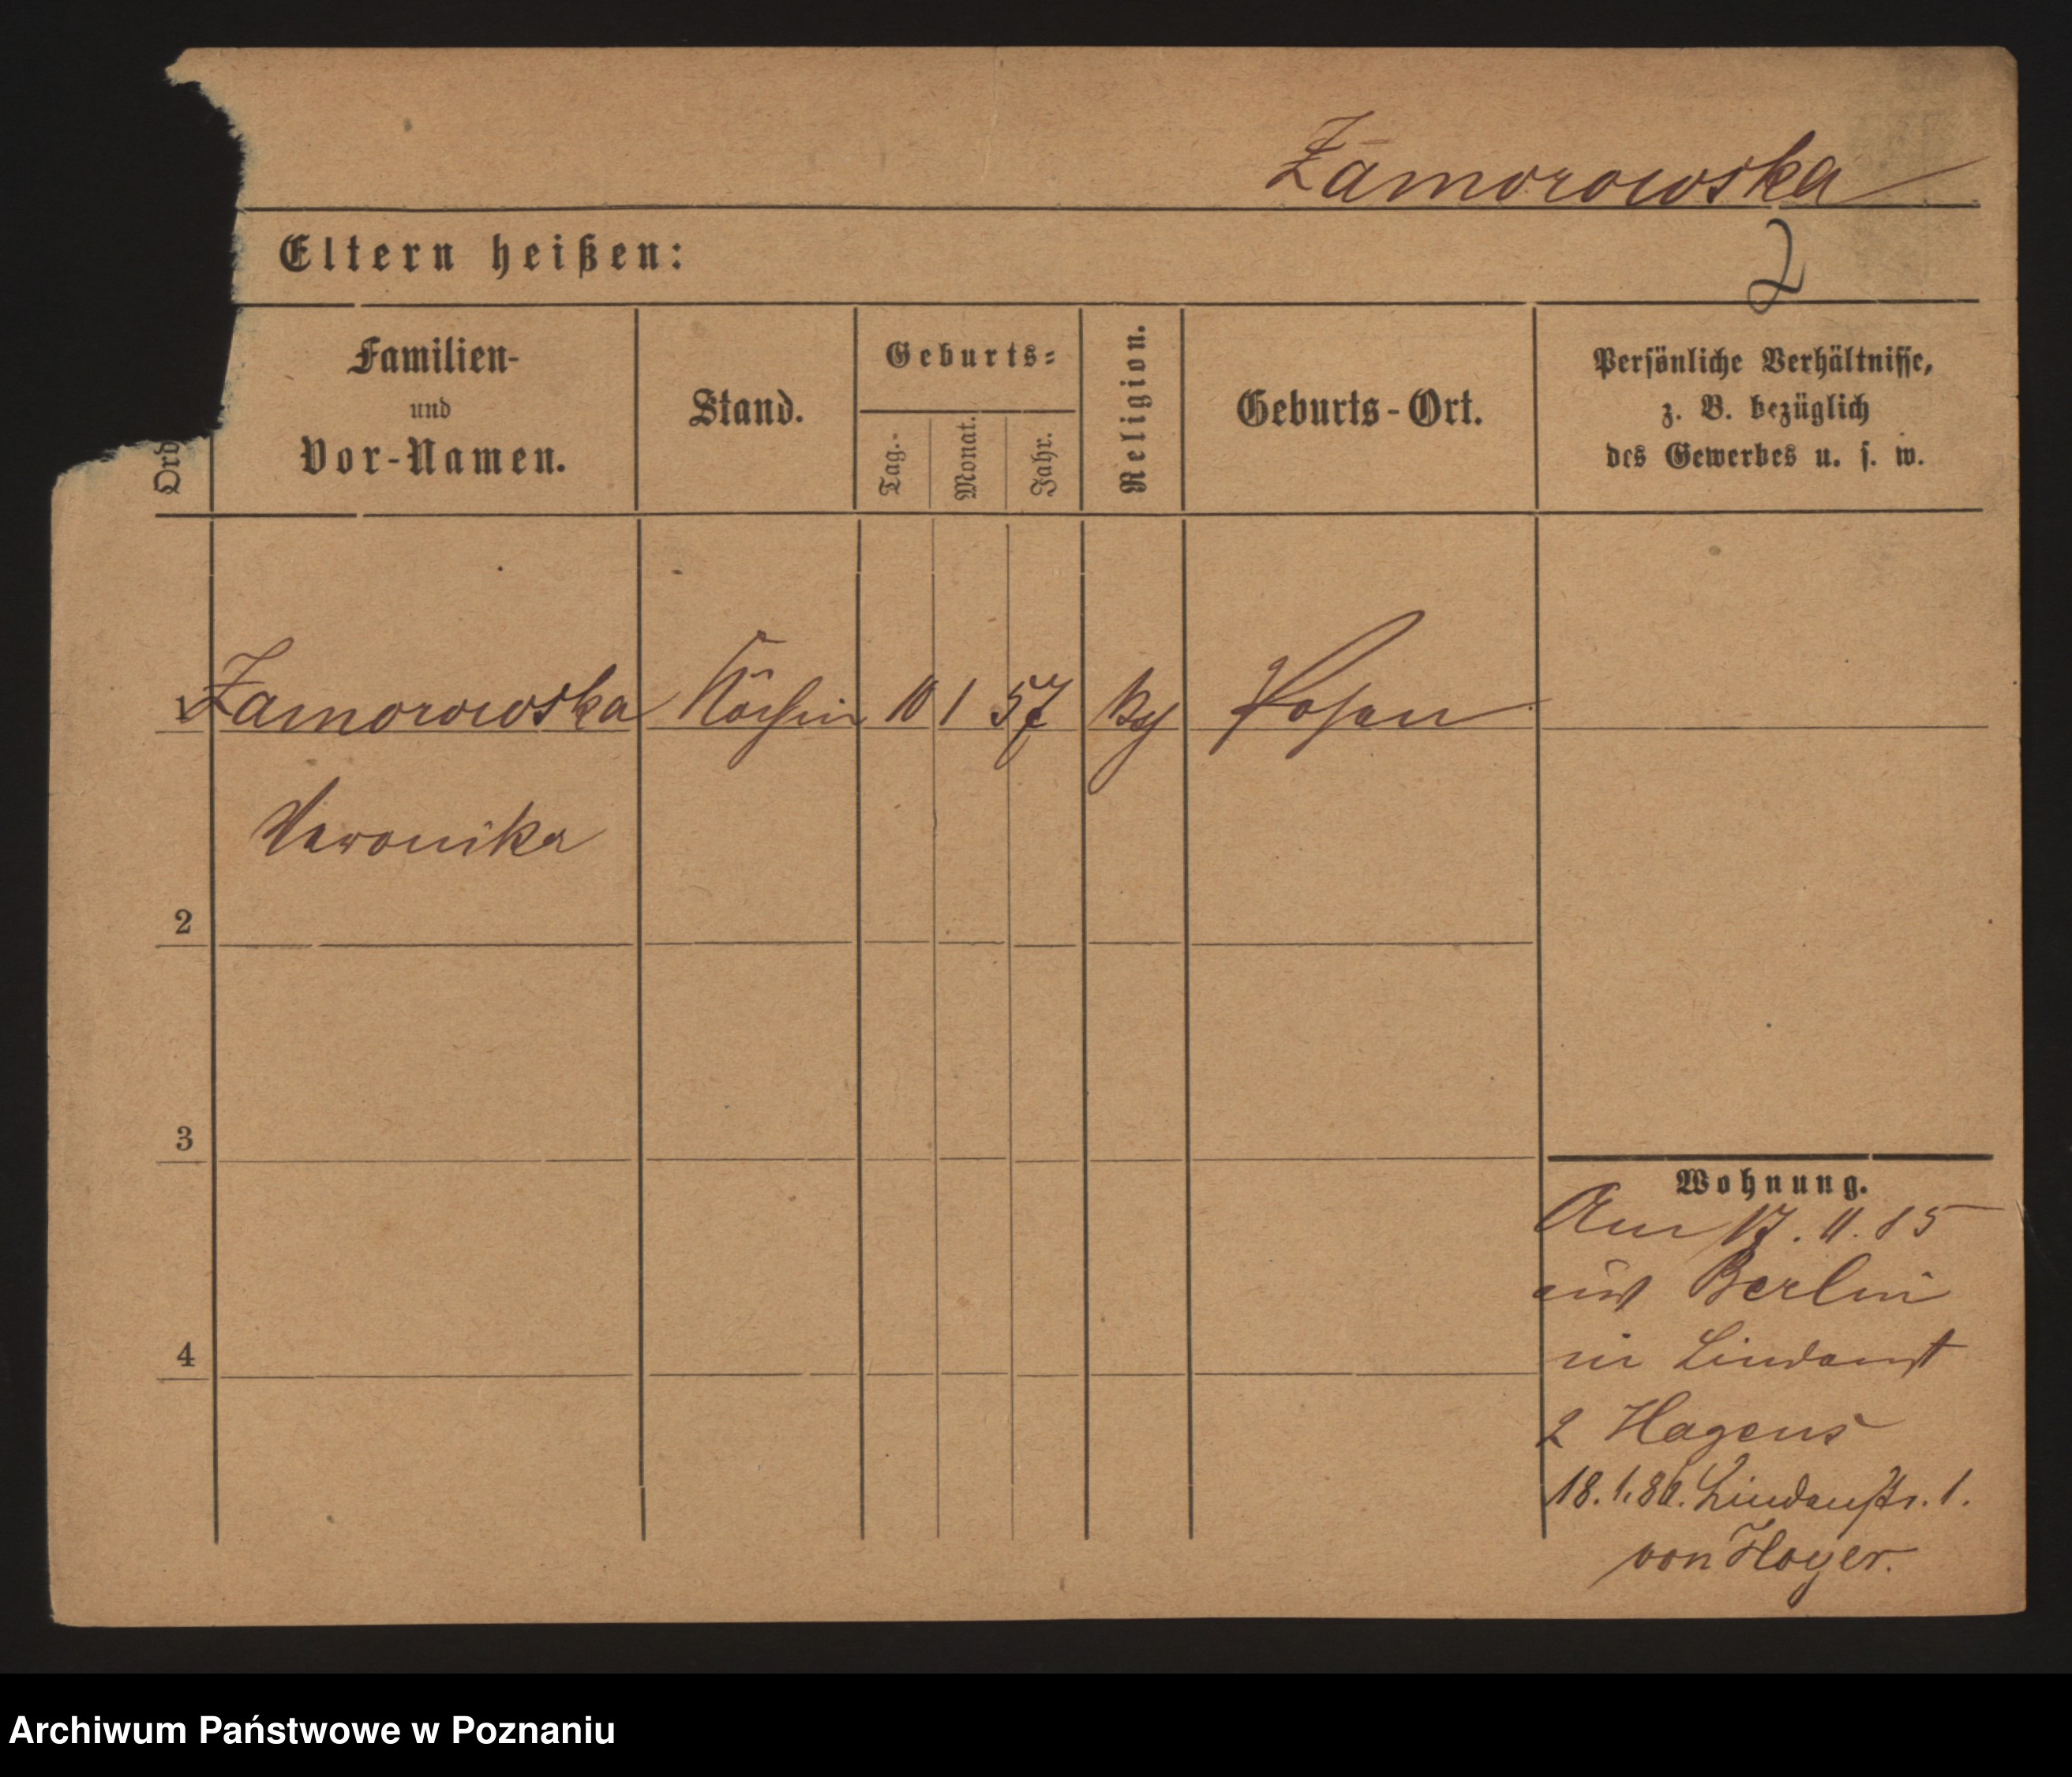 Zamorowska
Eltern heißen:
2
Ord
Familien-
und
Vor-Namen.
Stand.
Geburts=
Tag.-
Monat.
Jahr.
Religion.
Geburts-Ort.
Persönliche Verhältnisse,
z. B. bezüglich
des Gewerbes u. s. w.
1 Zamorowska Köchin 10 1 57 Posen
Veronika
2
3
4
Wohnung.
Am 17. 11. 85
aus Berlin
in Lindenst
2 Hagens
18. 1. 86. Lindenstr. 1.
von Hoyer.
Archiwum Państwowe w Poznaniu